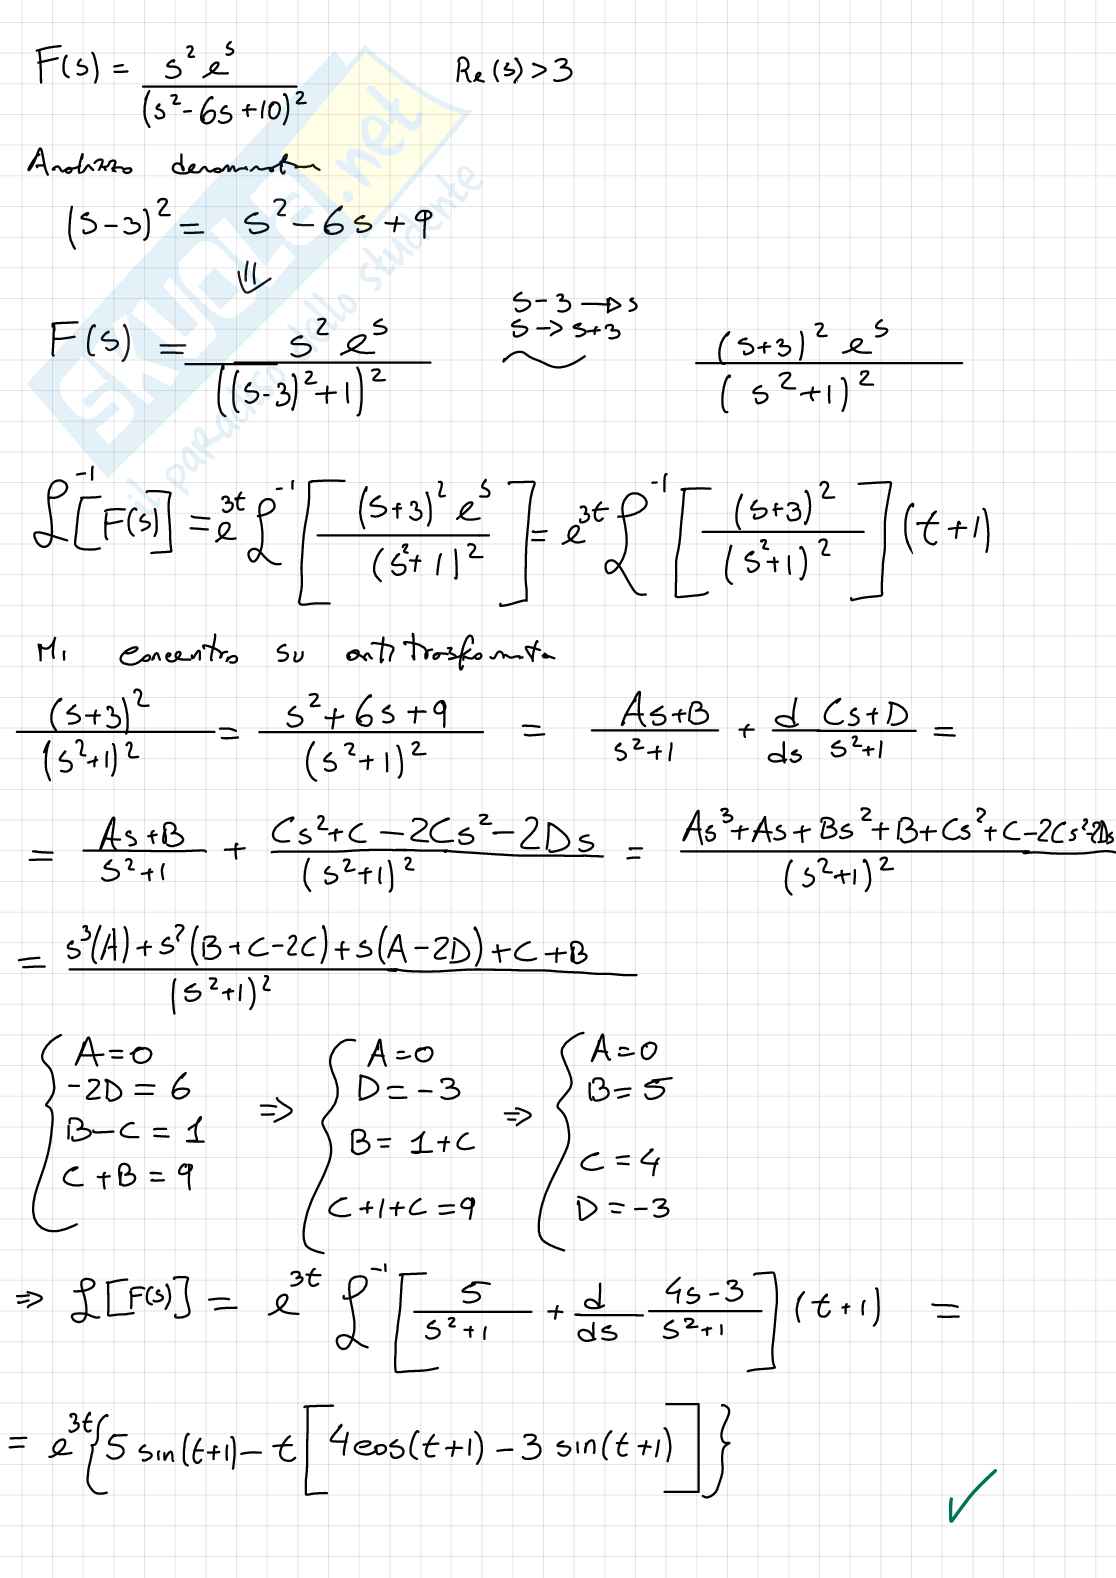 F(s) = s² e^s / (s² - 6s + 10)²    Re(s) > 3
Analizzo denominatore
(s-3)² = s² - 6s + 9
⇓
F(s) = s² e^s / ((s-3)² + 1)²    s-3 → s    s → s+3    (s+3)² e^s / (s² + 1)²
ℒ^-1 [F(s)] = e^3t ℒ^-1 [(s+3)² e^s / (s² + 1)²] = e^3t ℒ^-1 [(s+3)² / (s² + 1)²] (t+1)
Mi concentro su antitrasformata
(s+3)² / (s² + 1)² = s² + 6s + 9 / (s² + 1)² = As+B / s² + 1 + d/ds Cs+D / s² + 1 =
= As+B / s² + 1 + Cs² + C - 2Cs² - 2Ds / (s² + 1)² = As³ + As + Bs² + B + Cs² + C - 2Cs² - 2Ds / (s² + 1)²
= s³(A) + s²(B + C - 2C) + s(A - 2D) + C + B / (s² + 1)²
{ A = 0    { A = 0    { A = 0
-2D = 6 ⇒ D = -3 ⇒ B = 5
B - C = 1    B = 1 + C    C = 4
C + B = 9    C + 1 + C = 9    D = -3
⇒ ℒ [F(s)] = e^3t ℒ^-1 [5 / s² + 1 + d/ds 4s - 3 / s² + 1] (t+1) =
= e^3t {5 sin(t+1) - t [4cos(t+1) - 3 sin(t+1)]}
✓
SKUOLA.net
il paradiso dello studente